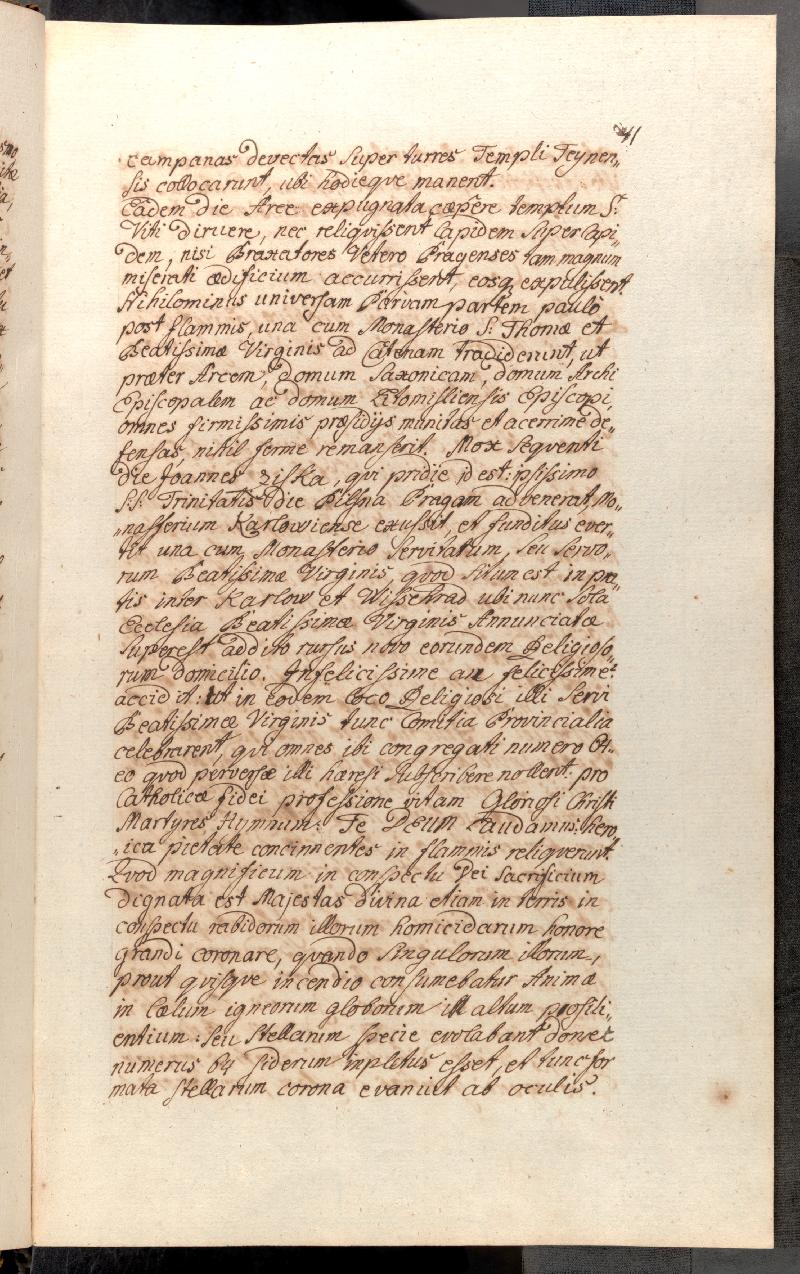 41
campanas devectas super turres Templi Teynen„
sis collocarunt, ubi hodieqve manent.
Eâdem die Arce expugnata cæpêre templum S:
Viti diruere, nec reliqvissent lapidem super lapi„
dem, nisi Braxatores Vetero Pragenses tam magnum
miserati ædificium accurrissent, eosq, expulissent.
Nihilominus universam Parvam partem paulò
post flammis, una cum Monasterio S: Thomæ et
Beatissimæ Virginis ad Catenam tradiderunt, ut
præter Arcem, Domum Saxonicam, domum Archi
Episcopalem ac domum Litomisliensis Episcopi,
omnes firmissimis præsidijs munitas et acerrimè de„
fensas, nihil ferme remanserit. Mox seqventi
die Joannes Ziska, qvi pridie id est: ipsissimo
S:S: Trinitatis die Pilsna Pragam advenerat, Mo„
„nasterium Karlowiense exussit, et funditus ever„
tit una cum Monasterio Servitarum, seu Servo„
rum Beatissimæ Virginis, qvod situm est in pra„
tis inter Karlow et Wissehrad ubi nunc sola
Ecclesia Beatissimæ Virginis Annunciatæ
superest addito rursus novo eorundem Religioso„
rum domicilio. Infelicissime an felicissime:
accidit: ut in eodem loco Religiosi illi Servi
Beatissimæ Virginis tunc Comitia Provincialia
celebrarent, qvi omnes ibi congregati numero 64.
eo qvod perversæ illi hæresi subscribere nollent: pro
Catholicæ fidei professione vitam Gloriosi Christi
Martyres Hymnum: Te DEUM Laudamus: hero„
„ica pietate concinnentes in flammis reliqverunt.
Qvod magnificum in conspectu Dei Sacrificium
dignata est Majestas Divina etiam in terris in
conspectu rabidorum illorum homicidarum honore
grandi coronare, qvando singulorum illorum,
prout qvisqve incendio consumebatur Animæ
in Cœlum igneorum globorum in altum prosili„
entium: seu stellarum specie evolabant donec
numerus 64 siderum inpletus esset, et tunc for
mata stellarum corona evanuit ab oculis.